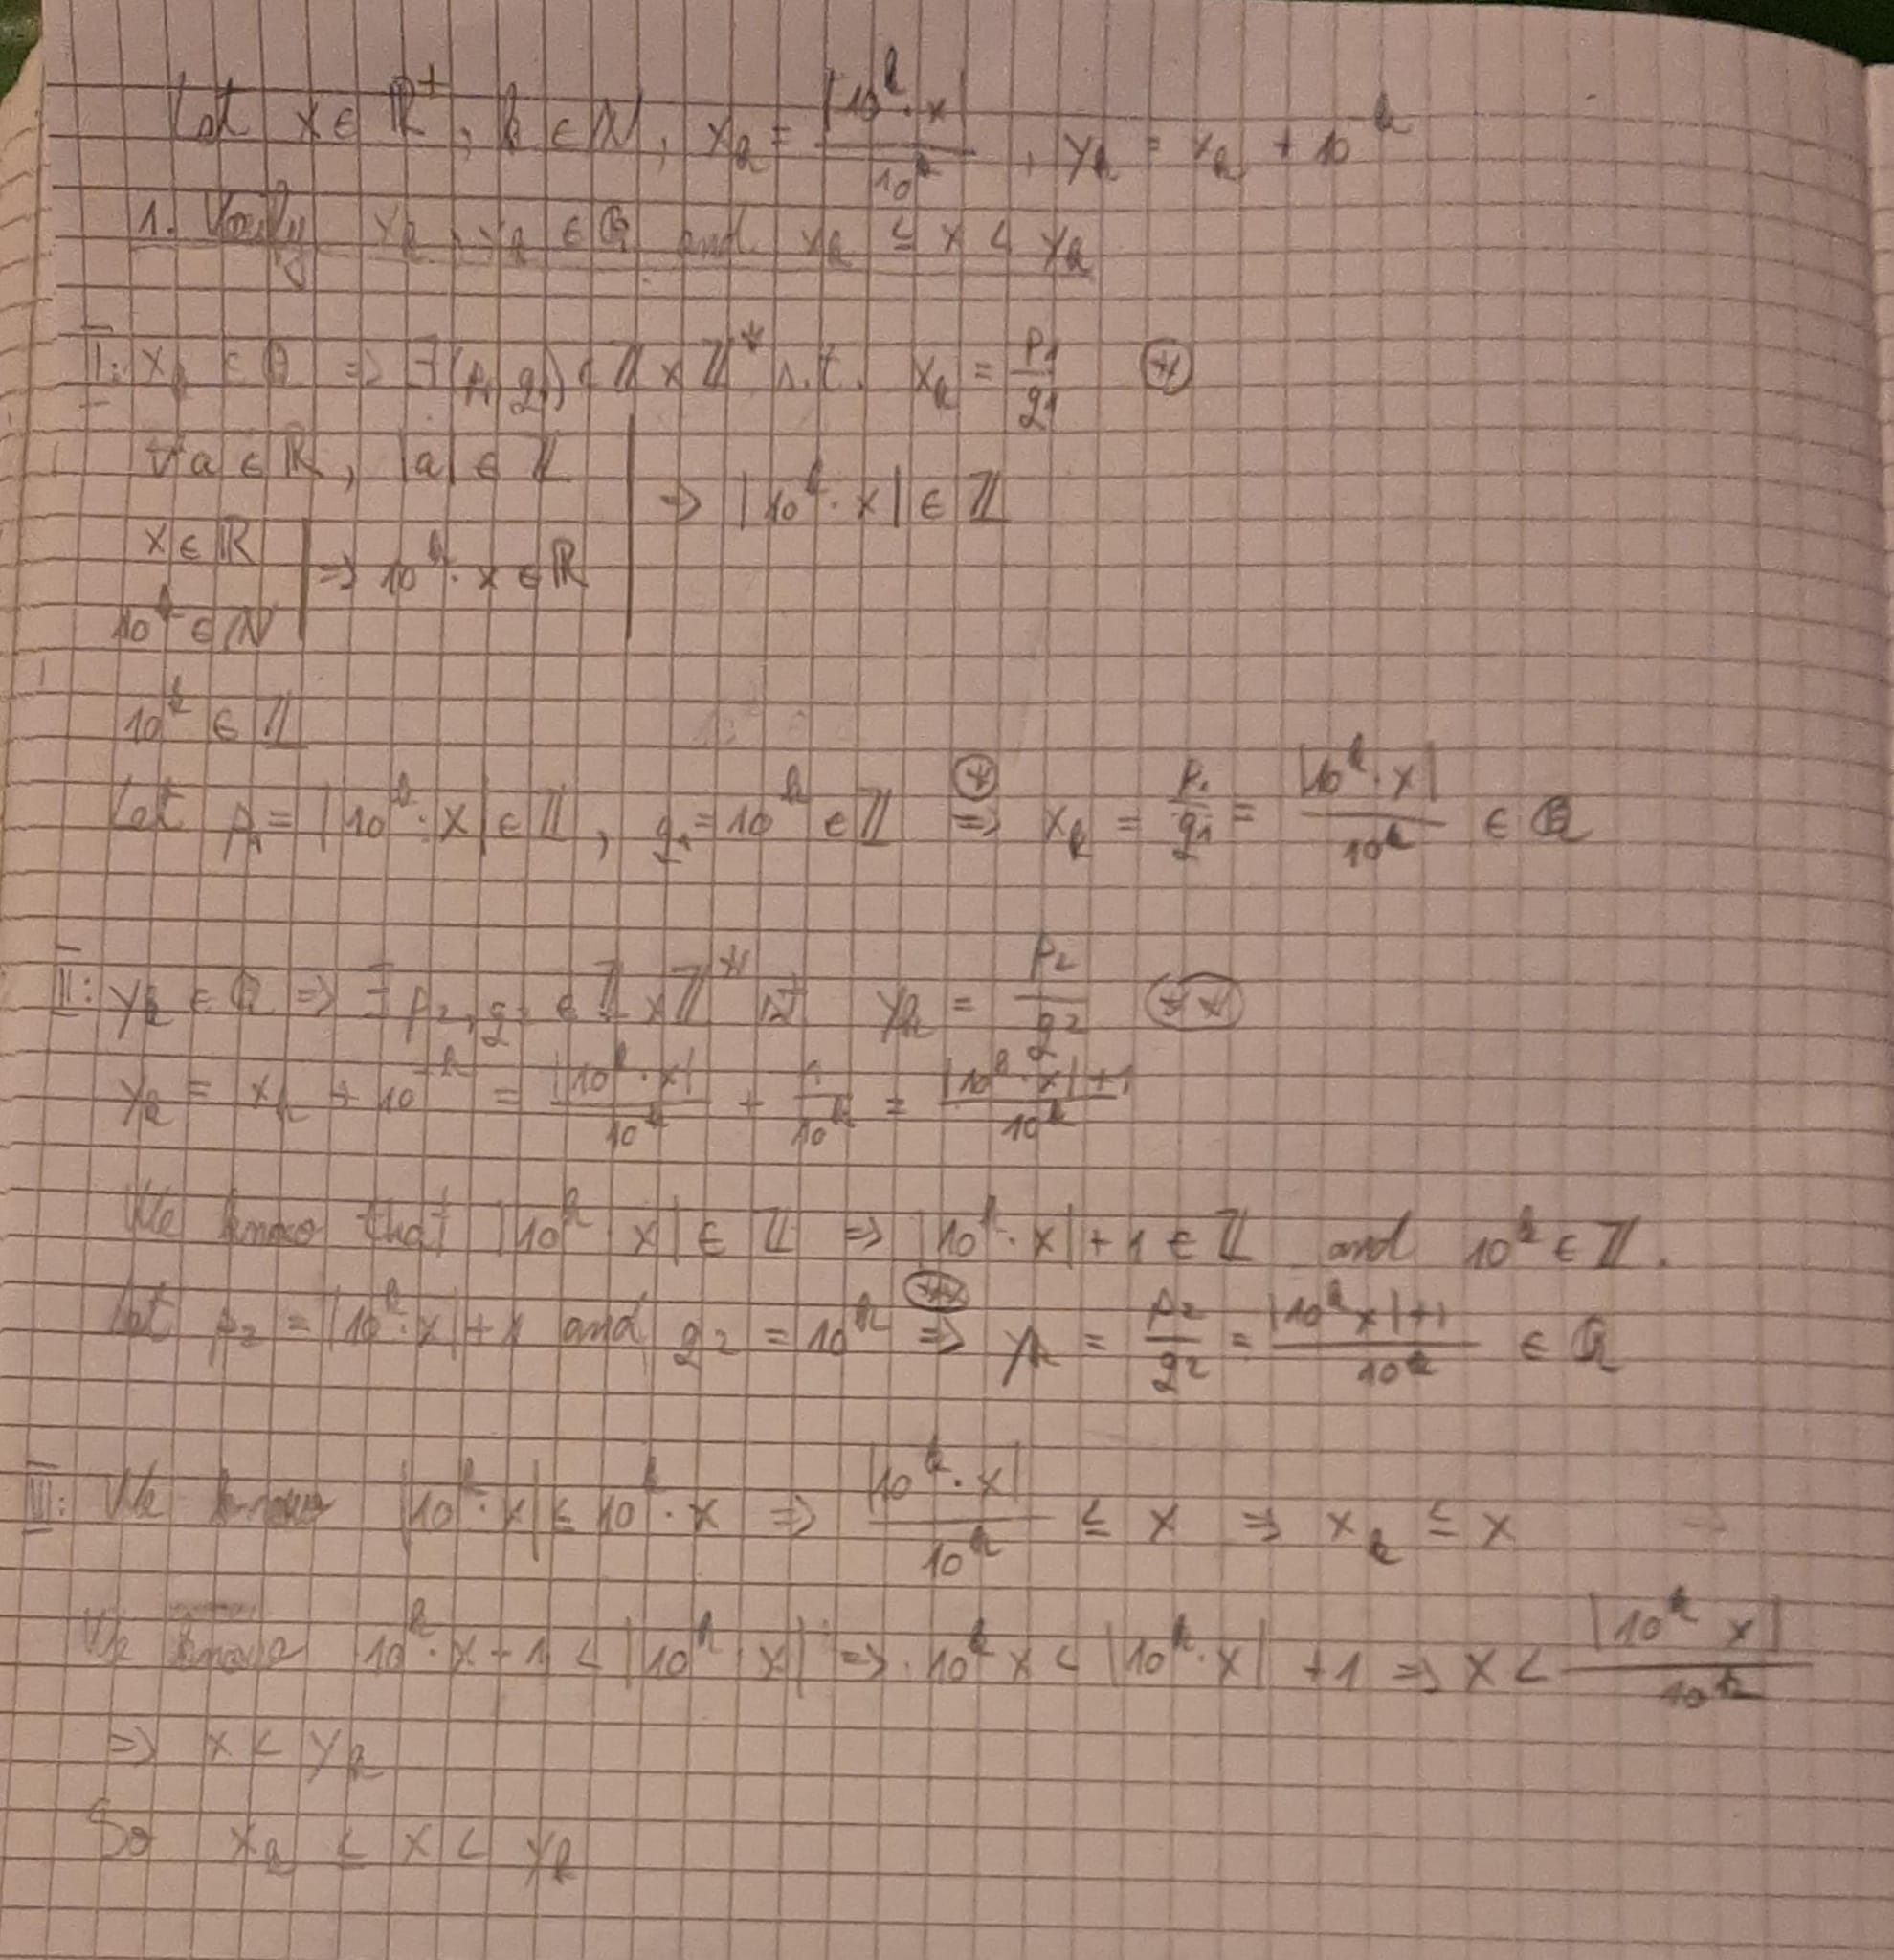 Let x ∈ ℝ⁺, k ∈ ℕ, x_k = ⌊10^k · x⌋ / 10^k, y_k = x_k + 10^-k
1. Verify x_k, y_k ∈ ℚ and x_k ≤ x < y_k
I: x_k ∈ ℚ => ∃(p₁, q₁) ∈ ℤ × ℤ* s.t. x_k = p₁/q₁ (*)
∀a ∈ ℝ, ⌊a⌋ ∈ ℤ
=> ⌊10^k · x⌋ ∈ ℤ
x ∈ ℝ
=> 10^k · x ∈ ℝ
10^k ∈ ℕ
10^k ∈ ℤ
Let p₁ = ⌊10^k · x⌋ ∈ ℤ, q₁ = 10^k ∈ ℤ (*) => x_k = p₁/q₁ = ⌊10^k · x⌋ / 10^k ∈ ℚ
II: y_k ∈ ℚ => ∃ p₂, q₂ ∈ ℤ × ℤ* s.t. y_k = p₂/q₂ (**)
y_k = x_k + 10^-k = ⌊10^k · x⌋ / 10^k + 1/10^k = (⌊10^k · x⌋ + 1) / 10^k
We know that ⌊10^k x⌋ ∈ ℤ => ⌊10^k · x⌋ + 1 ∈ ℤ and 10^k ∈ ℤ.
Let p₂ = ⌊10^k · x⌋ + 1 and q₂ = 10^k (**) => y_k = p₂/q₂ = (⌊10^k x⌋ + 1) / 10^k ∈ ℚ
III: We know ⌊10^k · x⌋ ≤ 10^k · x => ⌊10^k · x⌋ / 10^k ≤ x => x_k ≤ x
We know 10^k · x - 1 < ⌊10^k · x⌋ => 10^k x < ⌊10^k · x⌋ + 1 => x < ⌊10^k x⌋ / 10^k
=> x < y_k
So x_k ≤ x < y_k